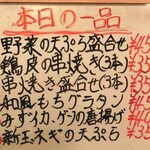 本日の一品
野菜の天ぷら盛合せ ¥45
鶏皮の串焼き(3本) ¥35
串焼き盛合せ(3本) ¥35
和風もちグラタン ¥45
みずイカ、ゲソの唐揚げ ¥35
新玉ネギの天ぷら ¥35